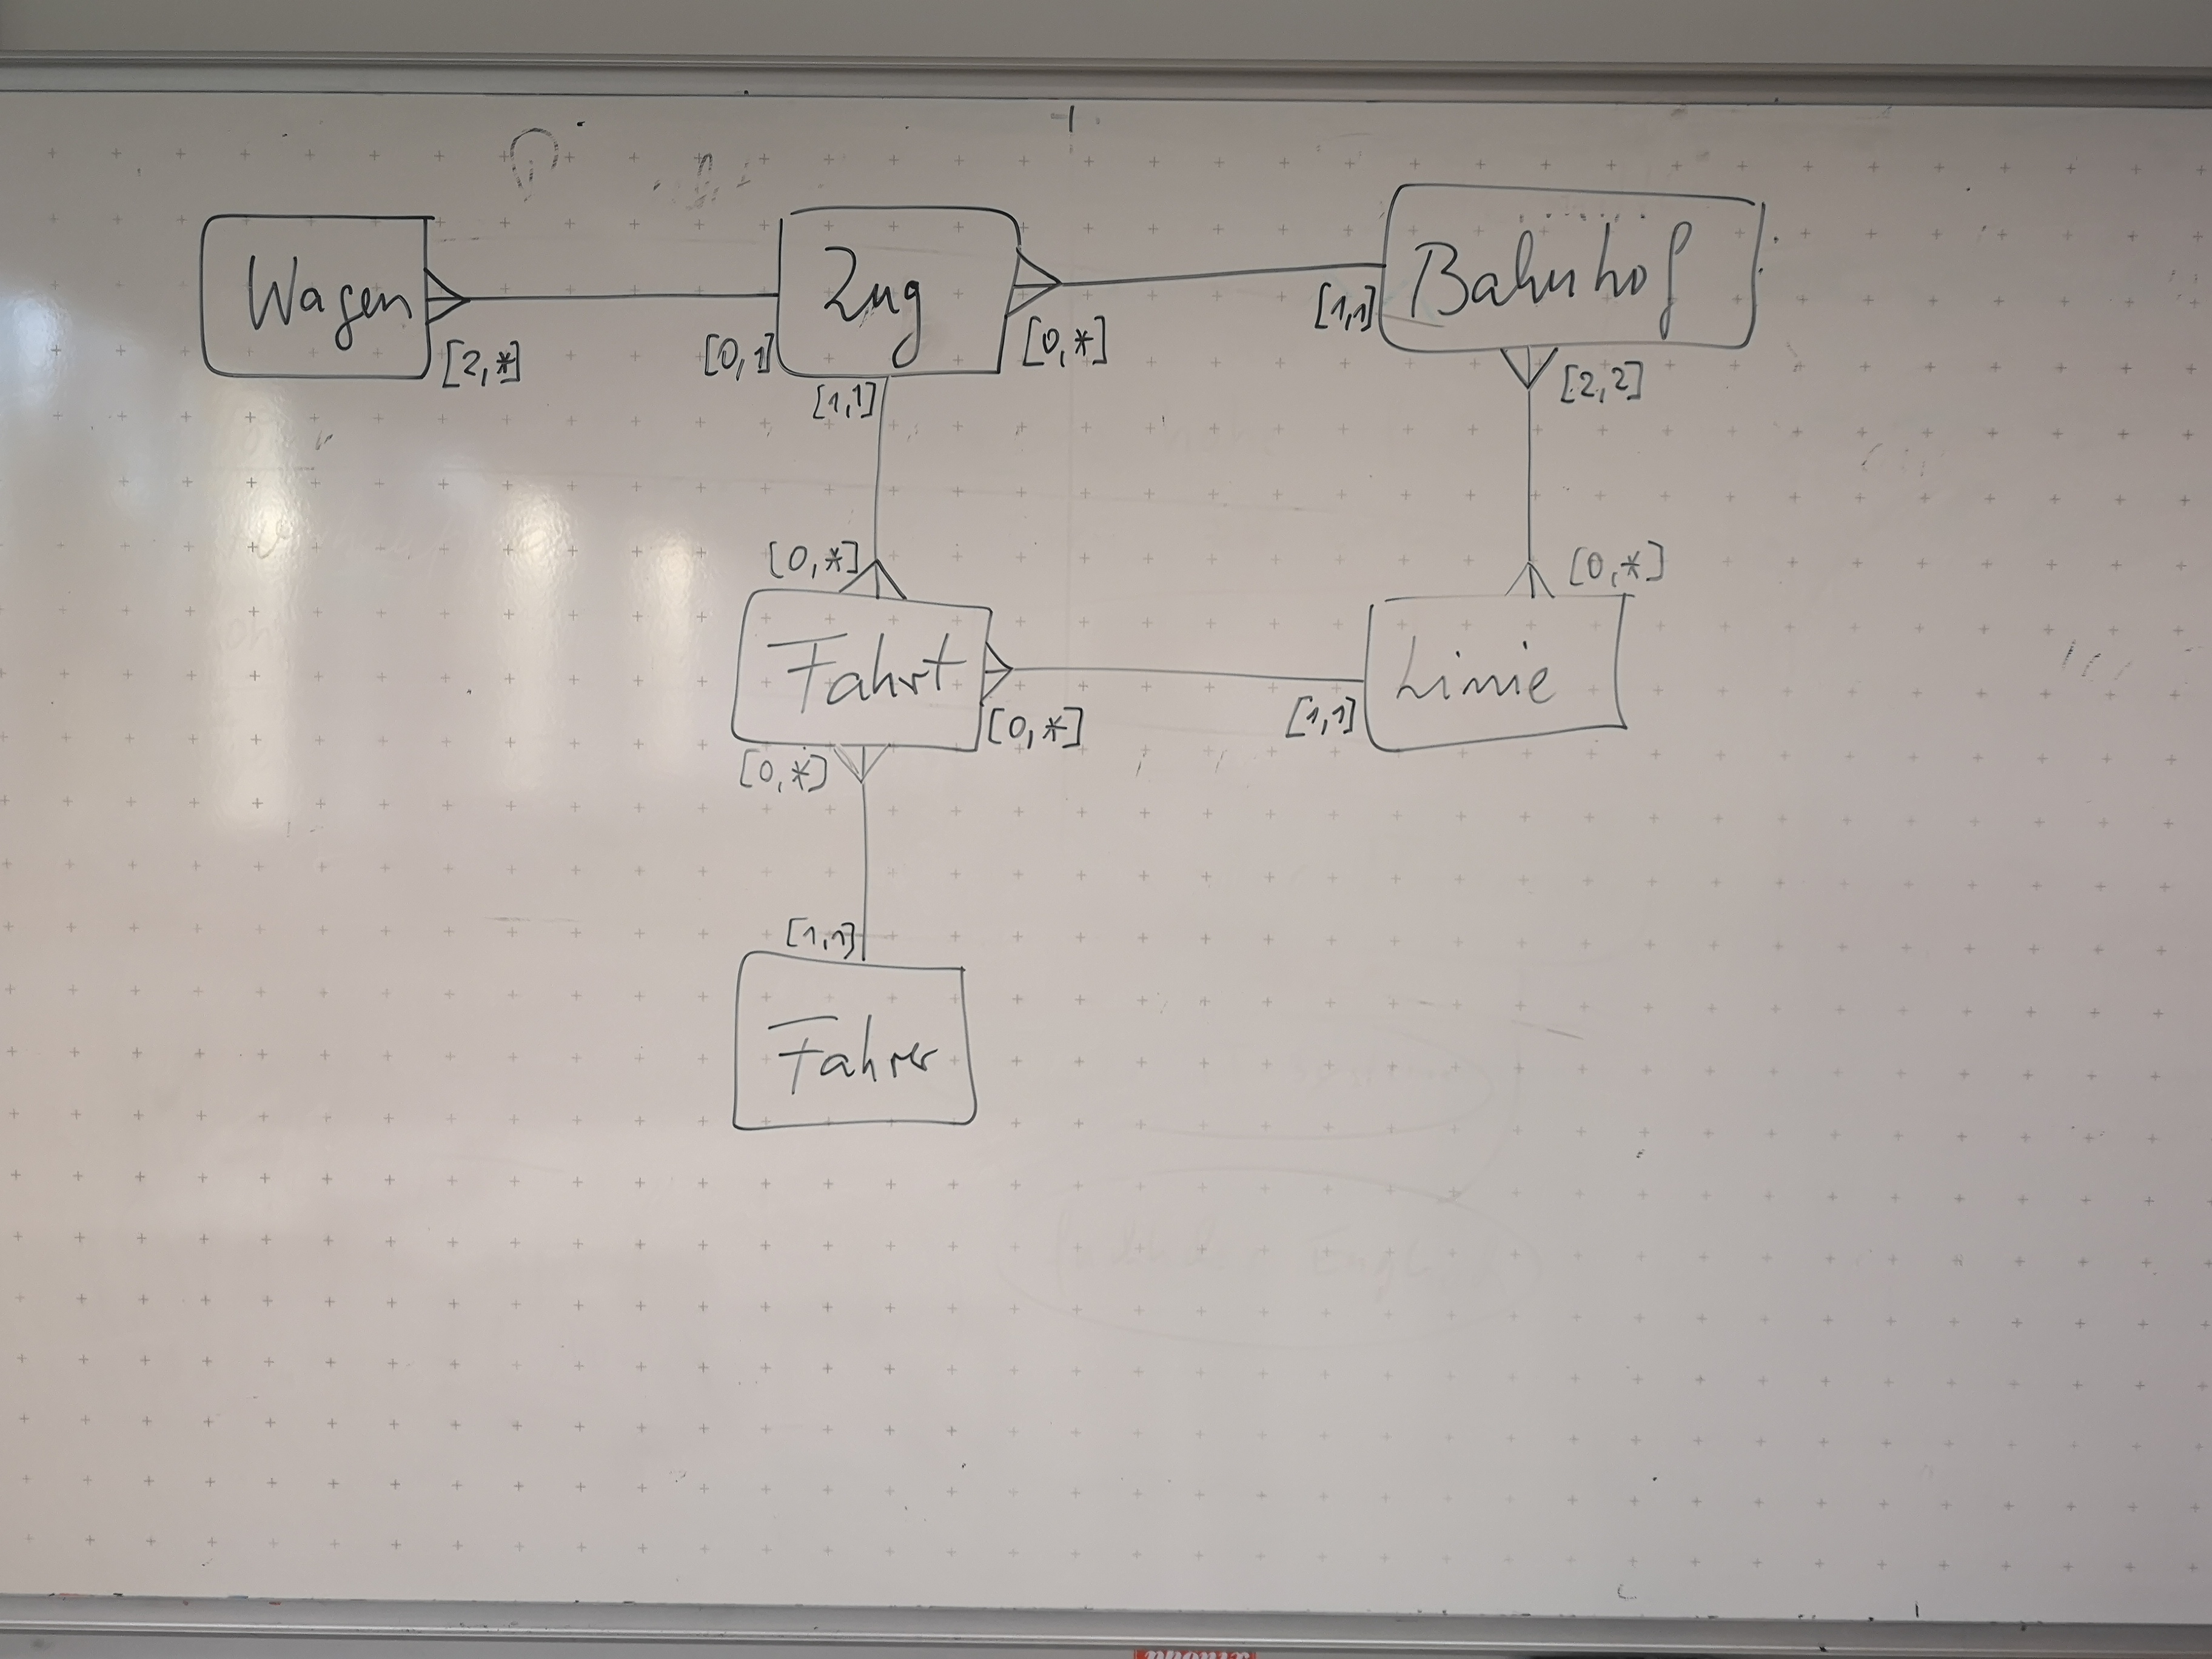 Wagen
[2,*]
[0,1]
Zug
[0,*]
[1,1]
Bahnhof
[1,1]
[2,2]
[0,*]
[0,*]
Fahrt
[0,*]
[1,1]
Linie
[0,*]
[1,1]
Fahrer